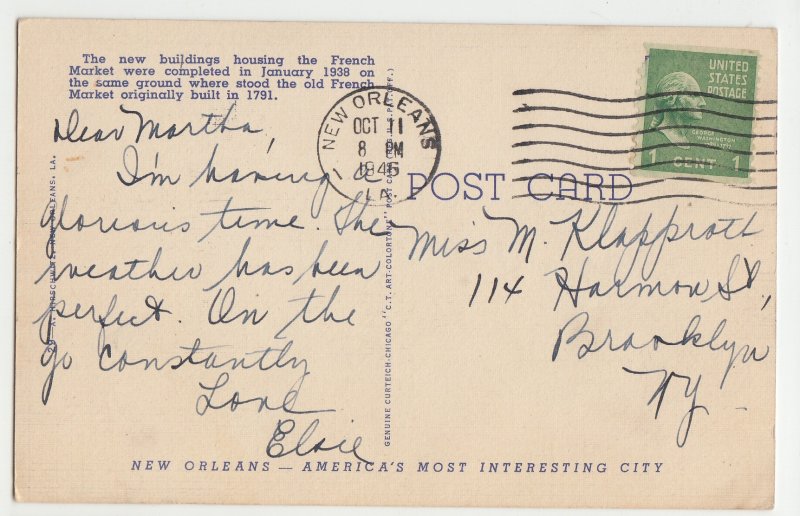 The new buildings housing the French
Market were completed in January 1938 on
the same ground where stood the old French
Market originally built in 1791.
Dear Martha,
I'm having a
glorious time. The
weather has been
perfect. On the
go constantly
Love
Elsie
NEW ORLEANS
OCT 11
8 PM
1945
LA.
UNITED
STATES
POSTAGE
GEORGE
WASHINGTON
1 CENT 1
POST CARD
Miss M. Klapproth
114 Harmon St,
Brooklyn
NY
GENUINE CURTEICH-CHICAGO "C.T. ART-COLORTONE" POST CARD (REG. U.S. PAT. OFF.)
NEW ORLEANS, LA.
NEW ORLEANS — AMERICA'S MOST INTERESTING CITY